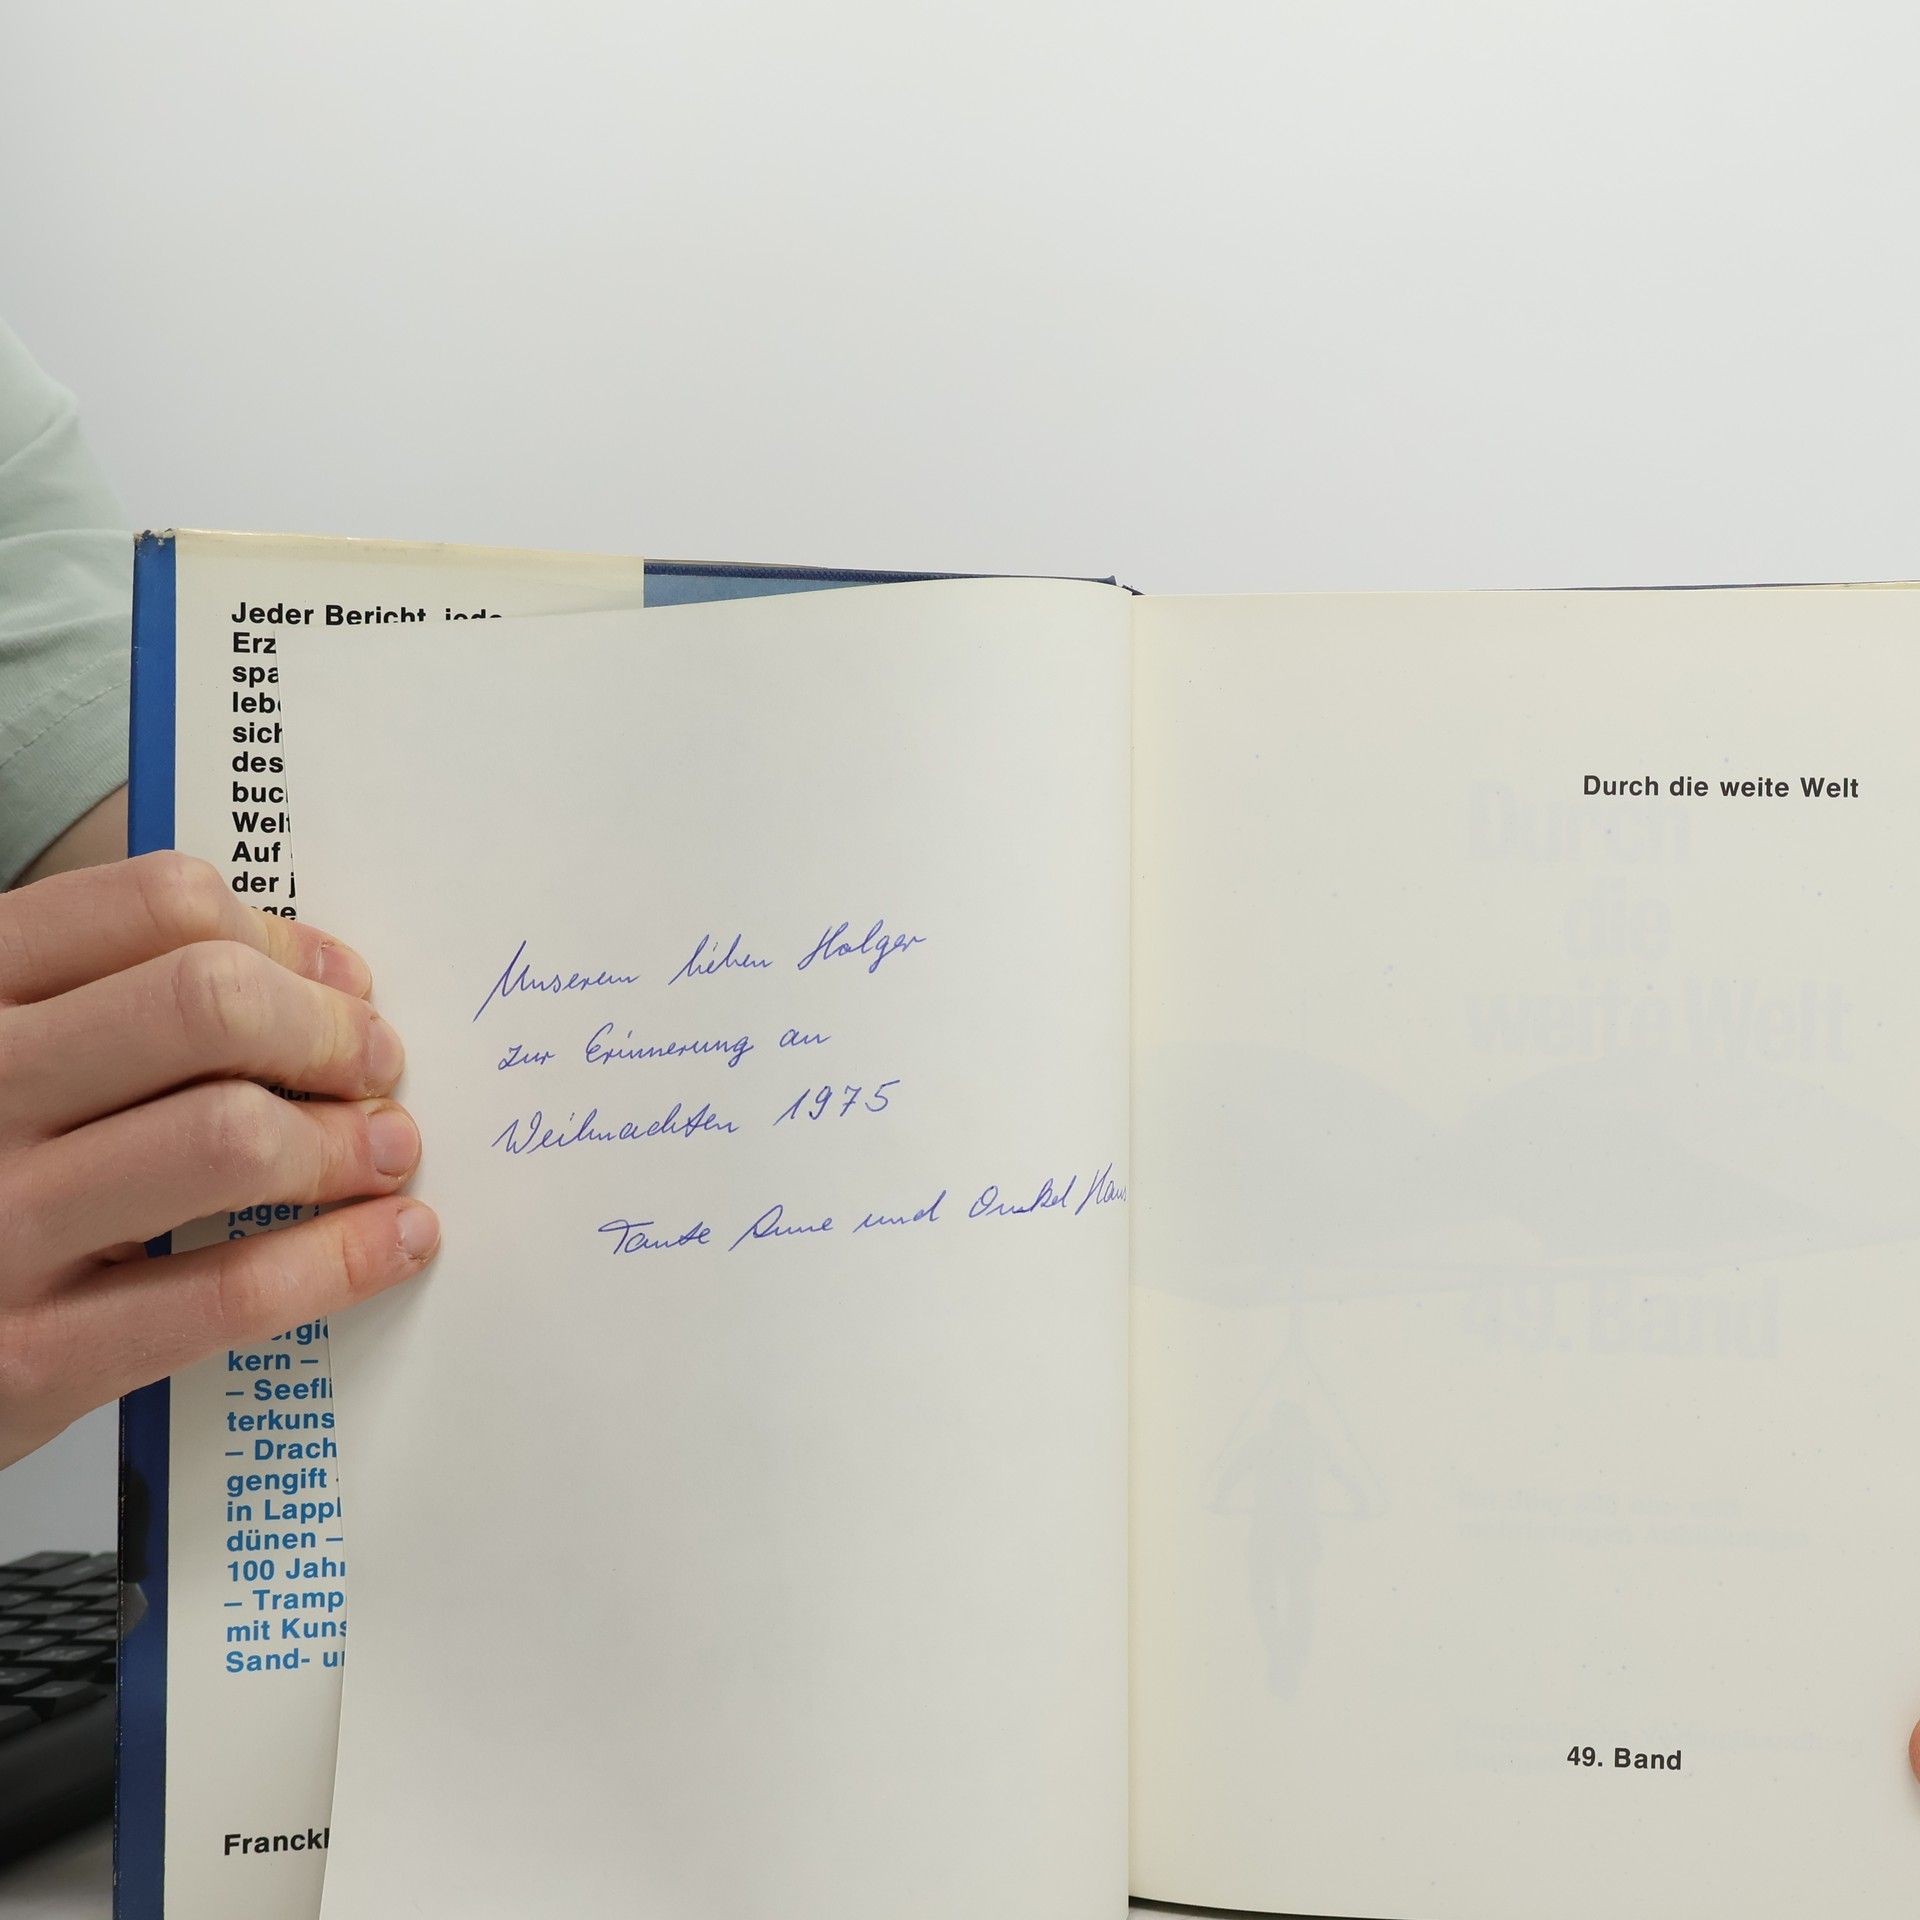 Jeder Bericht, jede
Erz
spa
lebe
sich
des
buc
Welt
Auf
der j
jäger
kern –
– Seefli
terkuns
– Drach
gengift
in Lappl
dünen –
100 Jahr
– Tramp
mit Kuns
Sand- u
Franckh
Unserem lieben Holger
zur Erinnerung an
Weihnachten 1975
Tante Anne und Onkel Hans
Durch die weite Welt
49. Band